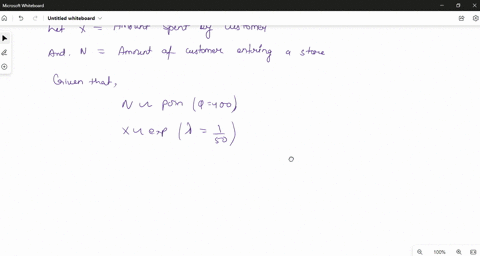 Microsoft Whiteboard
Untitled whiteboard
Let X = Amount spent by customer
And. N = Amount of customer entering a store
Given that,
N ~ poin (φ=400)
X ~ exp (λ = 1/50)
100%